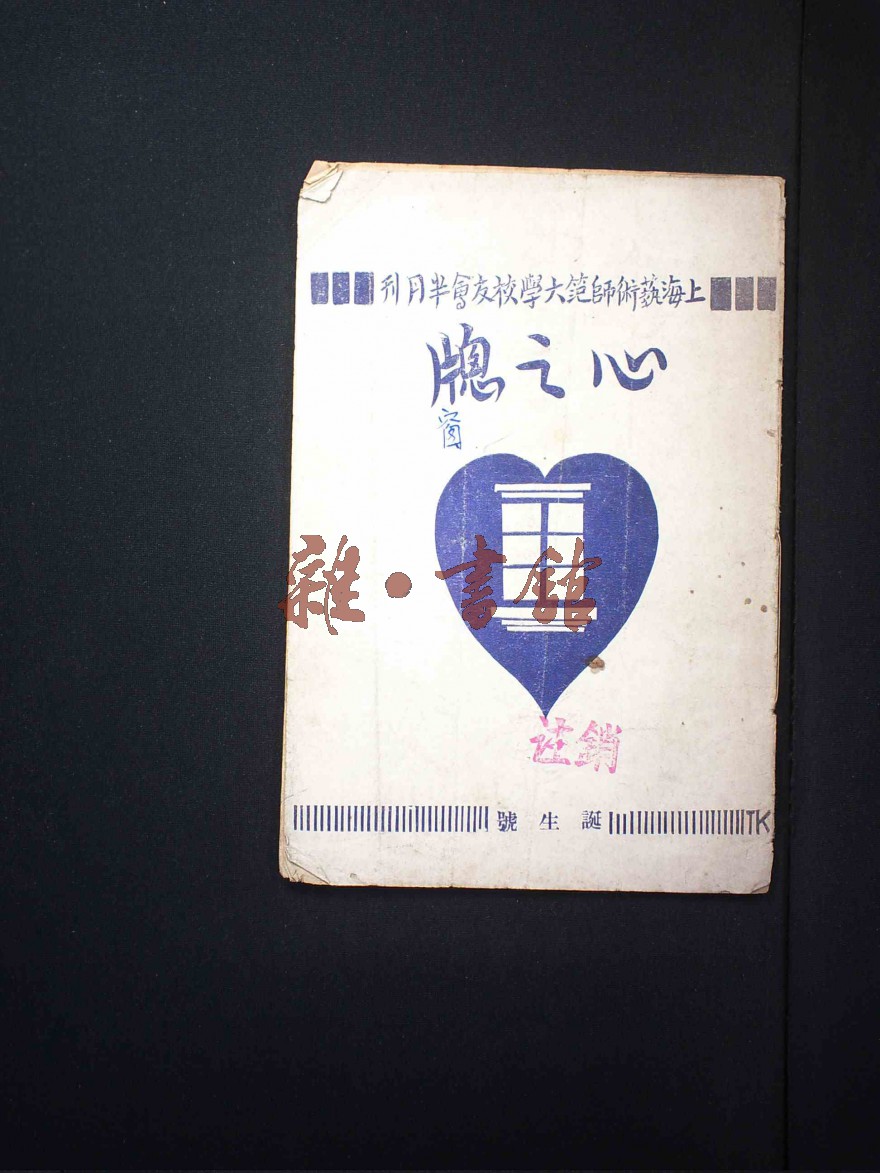 上海藝術師範大學校友會半月刊
心之牕
窗
雜·書館
註銷
誕生號
TK